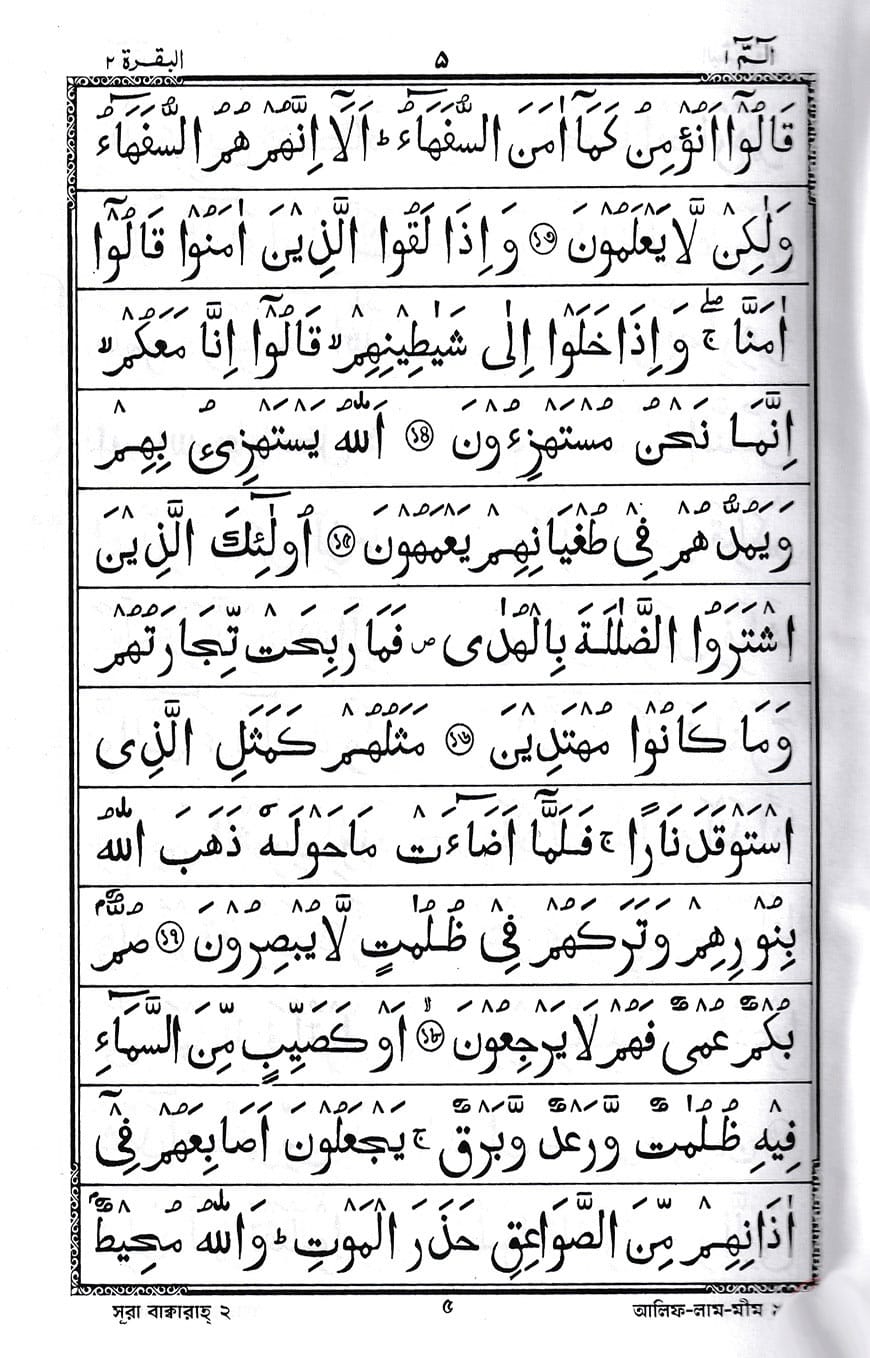 الٓمّٓ ١ ۵ البقرة ٢
قَالُوْۤا اَنُؤْمِنُ كَمَاۤ اٰمَنَ السُّفَهَآءُ ؕ اَلَاۤ اِنَّهُمْ هُمُ السُّفَهَآءُ
وَلٰكِنْ لَّا يَعْلَمُوْنَ ১৩ وَاِذَا لَقُوا الَّذِيْنَ اٰمَنُوْا قَالُوْۤا
اٰمَنَّا ۖۚ وَاِذَا خَلَوْا اِلٰى شَيٰطِيْنِهِمْ ۙ قَالُوْۤا اِنَّا مَعَكُمْ ۙ
اِنَّمَا نَحْنُ مُسْتَهْزِءُوْنَ ১৪ اَللّٰهُ يَسْتَهْزِئُ بِهِمْ
وَيَمُدُّهُمْ فِيْ طُغْيَانِهِمْ يَعْمَهُوْنَ ১৫ اُولٰٓئِكَ الَّذِيْنَ
اشْتَرَوُا الضَّلٰلَةَ بِالْهُدٰى ۪ فَمَا رَبِحَتْ تِّجَارَتُهُمْ
وَمَا كَانُوْا مُهْتَدِيْنَ ১৬ مَثَلُهُمْ كَمَثَلِ الَّذِى
اسْتَوْقَدَ نَارًا ۚ فَلَمَّاۤ اَضَآءَتْ مَاحَوْلَهٗ ذَهَبَ اللّٰهُ
بِنُوْرِهِمْ وَتَرَكَهُمْ فِيْ ظُلُمٰتٍ لَّا يُبْصِرُوْنَ ১৭ صُمٌّۢ
بُكْمٌ عُمْىٌ فَهُمْ لَا يَرْجِعُوْنَ ۙ ১৮ اَوْ كَصَيِّبٍ مِّنَ السَّمَآءِ
فِيْهِ ظُلُمٰتٌ وَّرَعْدٌ وَّبَرْقٌ ۚ يَجْعَلُوْنَ اَصَابِعَهُمْ فِيْۤ
اٰذَانِهِمْ مِّنَ الصَّوَاعِقِ حَذَرَ الْمَوْتِ ؕ وَاللّٰهُ مُحِيْطٌۢ
সূরা বাক্বারাহ্ ২ ৫ আলিফ-লাম-মীম ১